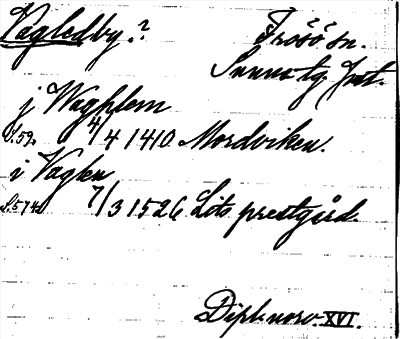 Vagledby.? Frösö sn.
Sunne tg. Jmt.
j Waghlem
S.59. 4/4 1410 Mordviken.
i Vaglen
S.574. 7/3 1526 Lits prestgård.
Dipl. norv. XVI.